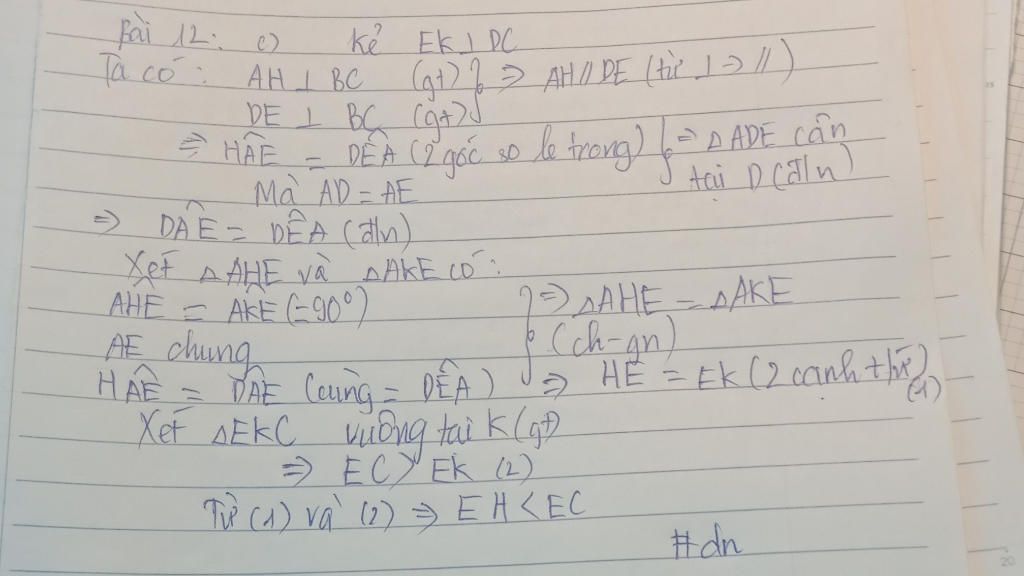 Bài 12: c) kẻ EK ⊥ DC
Ta có: AH ⊥ BC (gt) } => AH // DE (từ ⊥ -> //)
DE ⊥ BC (gt)
=> HÂE = DÊA (2 góc so le trong) } => △ADE cân
Mà AD = AE tại D (đ/n)
=> DÂE = DÊA (đ/n)
Xét △AHE và △AKE có:
AĤE = AK̂E (=90°) } => △AHE = △AKE
AE chung (ch-gn)
HÂE = DÂE (cùng = DÊA) => HE = EK (2 cạnh t/ư) (1)
Xét △EKC vuông tại K (gt)
=> EC > EK (2)
Từ (1) và (2) => EH < EC
#dn